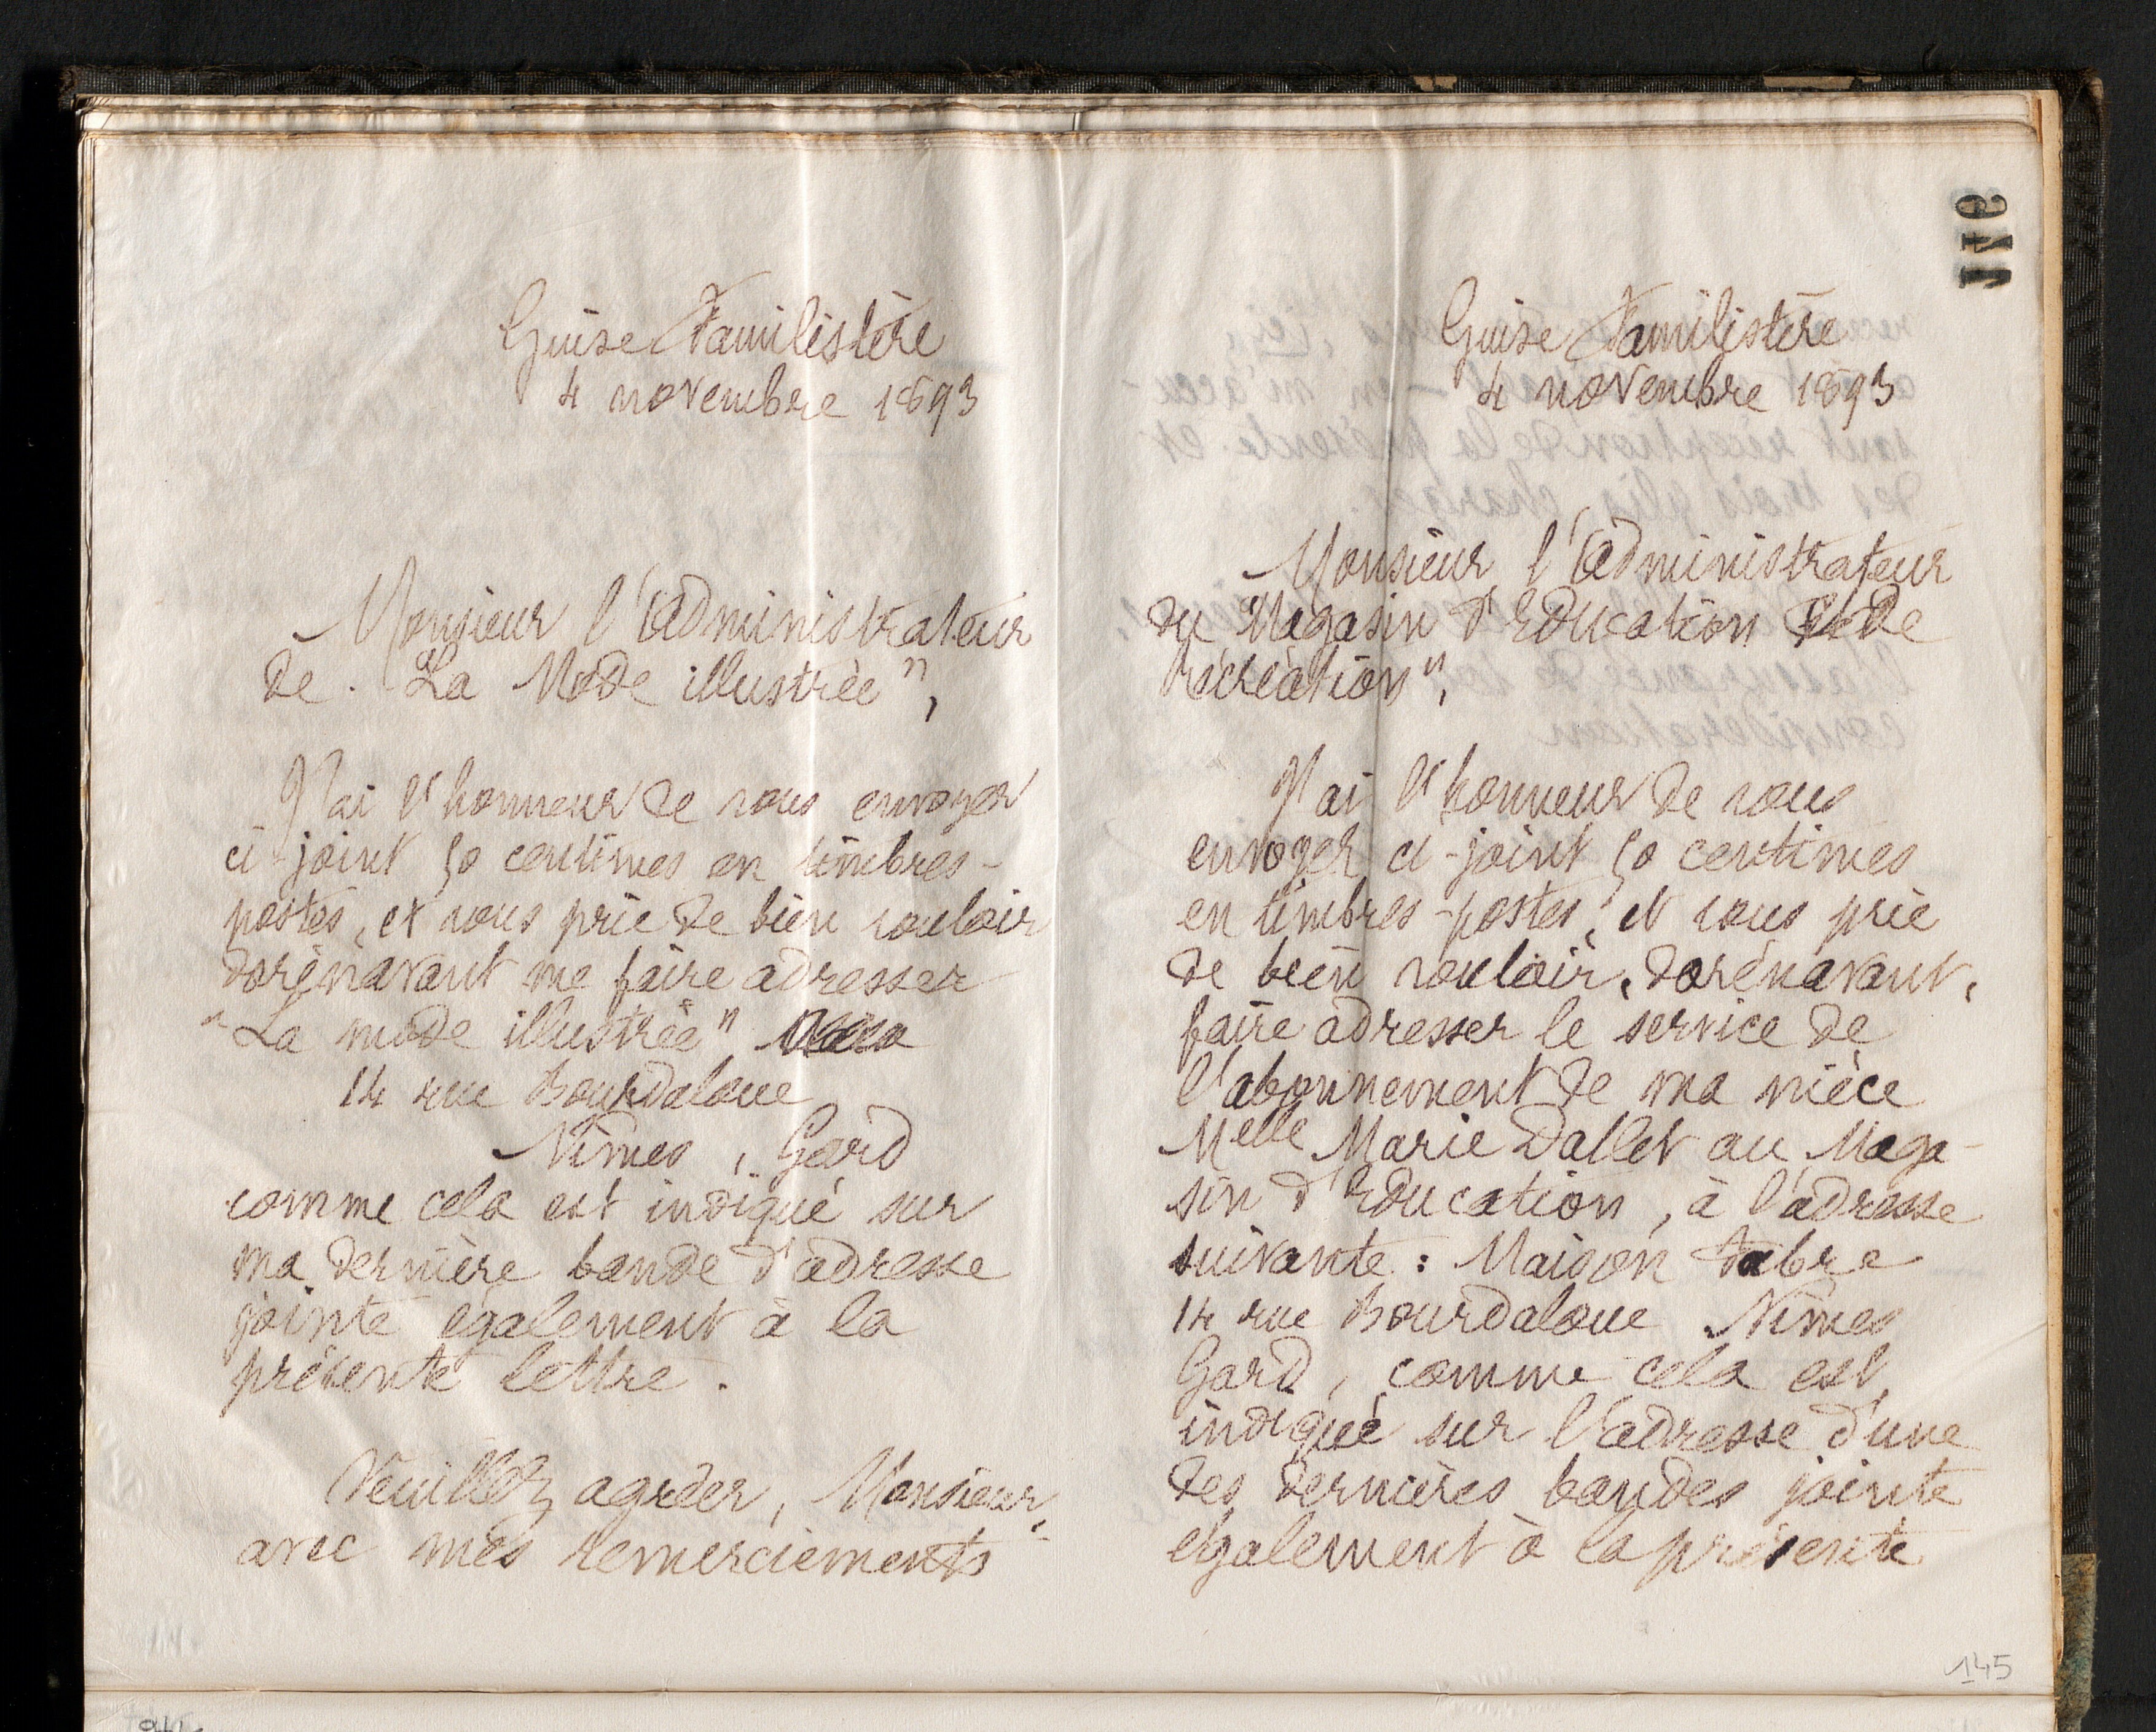 Guise Familistère
4 novembre 1893
Monsieur l'administrateur
de "La Mode illustrée",
J'ai l'honneur de vous envoyer
ci-joint 50 centimes en timbres-
postes, et vous prie de bien vouloir
dorénavant me faire adresser
"La mode illustrée"
14 rue Bourdaloue
Nîmes, Gard
comme cela est indiqué sur
ma dernière bande d'adresse
jointe également à la
présente lettre.
Veuillez agréer, Monsieur,
avec mes remerciements
Guise Familistère
4 novembre 1893
Monsieur l'administrateur
du "Magasin d'Education et de
récréation",
J'ai l'honneur de vous
envoyer ci-joint 50 centimes
en timbres-postes, et vous prie
de bien vouloir, dorénavant,
faire adresser le service de
l'abonnement de ma nièce
Melle Marie Dallet au Maga-
sin d'Education, à l'adresse
suivante : Maison Fabre
14 rue Bourdaloue Nîmes
Gard, comme cela est
indiqué sur l'adresse d'une
des dernières bandes jointe
également à la présente
145